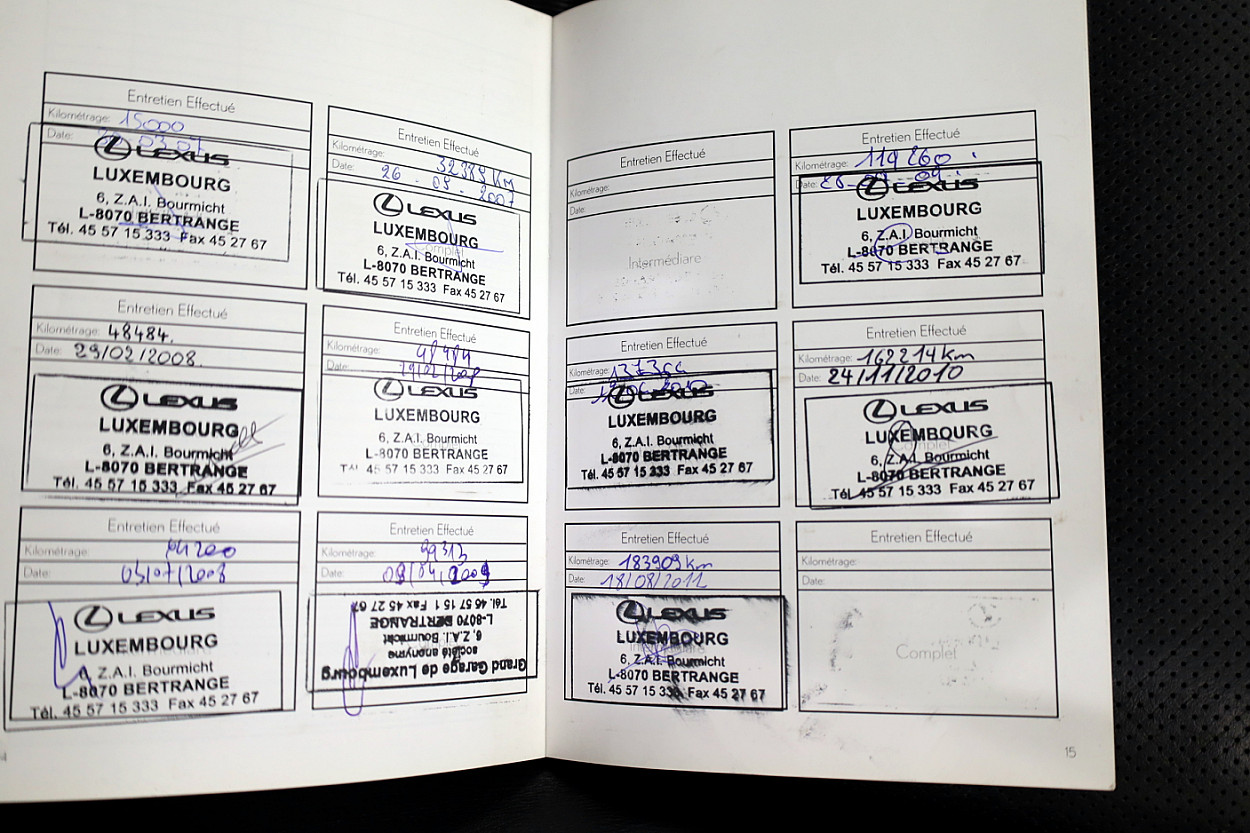 Entretien Effectué
Kilométrage: 15000
Date: 03.07
LEXUS
LUXEMBOURG
6, Z.A.I. Bourmicht
L-8070 BERTRANGE
Tél. 45 57 15 333 Fax 45 27 67
Entretien Effectué
Kilométrage: 32389 KM
Date: 26-09-2007
LEXUS
LUXEMBOURG
Complet
6, Z.A.I. Bourmicht
L-8070 BERTRANGE
Tél. 45 57 15 333 Fax 45 27 67
Entretien Effectué
Kilométrage: 48484.
Date: 29/02/2008.
LEXUS
LUXEMBOURG
6, Z.A.I. Bourmicht
L-8070 BERTRANGE
Tél. 45 57 15 333 Fax 45 27 67
Entretien Effectué
Kilométrage: 48484
Date:
LEXUS
LUXEMBOURG
6, Z.A.I. Bourmicht
L-8070 BERTRANGE
45 57 15 333 Fax 45 27 67
Entretien Effectué
Kilométrage:
Date: 03/07/2008
LEXUS
LUXEMBOURG
Z.A.I. Bourmicht
L-8070 BERTRANGE
Tél. 45 57 15 333 Fax 45 27 67
Entretien Effectué
Kilométrage: 99313
Date: 09/04/2009
Grand Garage de Luxembourg
société anonyme
6, Z.A.I. Bourmicht
L-8070 BERTRANGE
Tél. 45 57 15 1 Fax 45 27 67
Entretien Effectué
Kilométrage:
Date:
Intermédiare
Entretien Effectué
Kilométrage: 119260
Date: 09
LEXUS
LUXEMBOURG
6, Z.A.I. Bourmicht
L-8070 BERTRANGE
Tél. 45 57 15 333 Fax 45 27 67
Entretien Effectué
Kilométrage:
Date: 2010
LEXUS
LUXEMBOURG
6, Z.A.I. Bourmicht
L-8070 BERTRANGE
Tél. 45 57 15 333 Fax 45 27 67
Entretien Effectué
Kilométrage: 162214 km
Date: 24/11/2010
LEXUS
LUXEMBOURG
6, Z.A.I. Bourmicht
L-8070 BERTRANGE
Tél. 45 57 15 333 Fax 45 27 67
Entretien Effectué
Kilométrage: 183909 km
Date: 18/08/2011
LEXUS
LUXEMBOURG
6, Z.A.I. Bourmicht
L-8070 BERTRANGE
Tél. 45 57 15 333 Fax 45 27 67
Entretien Effectué
Kilométrage:
Date:
Complet
15